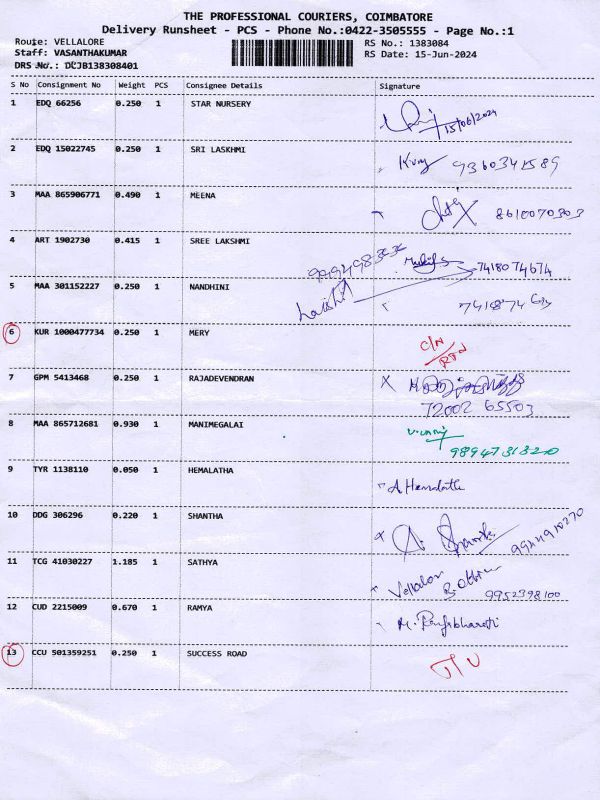 THE PROFESSIONAL COURIERS, COIMBATORE
Delivery Runsheet - PCS - Phone No.:0422-3505555 - Page No.:1
Route: VELLALORE RS No.: 1383084
Staff: VASANTHAKUMAR RS Date: 15-Jun-2024
DRS No.: DCJB138308401
S No Consignment No Weight PCS Consignee Details Signature
1 EDQ 66256 0.250 1 STAR NURSERY 15/06/2024
2 EDQ 15022745 0.250 1 SRI LASKHMI
3 MAA 865906771 0.490 1 MEENA 8610070303
4 ART 1902730 0.415 1 SREE LAKSHMI 7418074674
5 MAA 301152227 0.250 1 NANDHINI
6 KUR 1000477734 0.250 1 MERY C/N RTN
7 GPM 5413468 0.250 1 RAJADEVENDRAN
72002 65503
8 MAA 865712681 0.930 1 MANIMEGALAI
9894731320
9 TYR 1138110 0.050 1 HEMALATHA A Hemalatha
10 DDG 306296 0.220 1 SHANTHA
11 TCG 41030227 1.185 1 SATHYA Vellalor 9952398100
12 CUD 2215009 0.670 1 RAMYA
13 CCU 501359251 0.250 1 SUCCESS ROAD